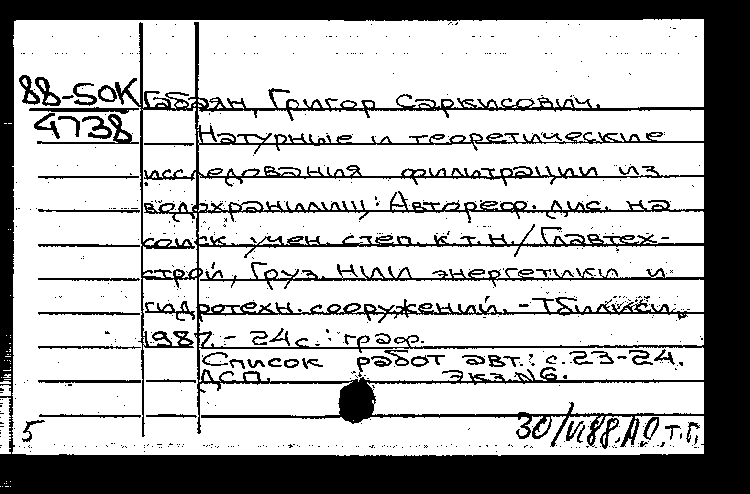 88-50К Габаян, Григор Саркисович.
4738
Натурные и теоретические
исследования фильтрации из
водохранилищ: Автореф. дис. на
соиск. учен. степ. к.т.н. / Главтех-
строй, Груз. НИИ энергетики и
гидротехн. сооружений. - Тбилиси,
1987. - 24 с.: граф.
Список работ авт.: с. 23-24.
ДСП. Экз. № 6.
5
30/VI 88.